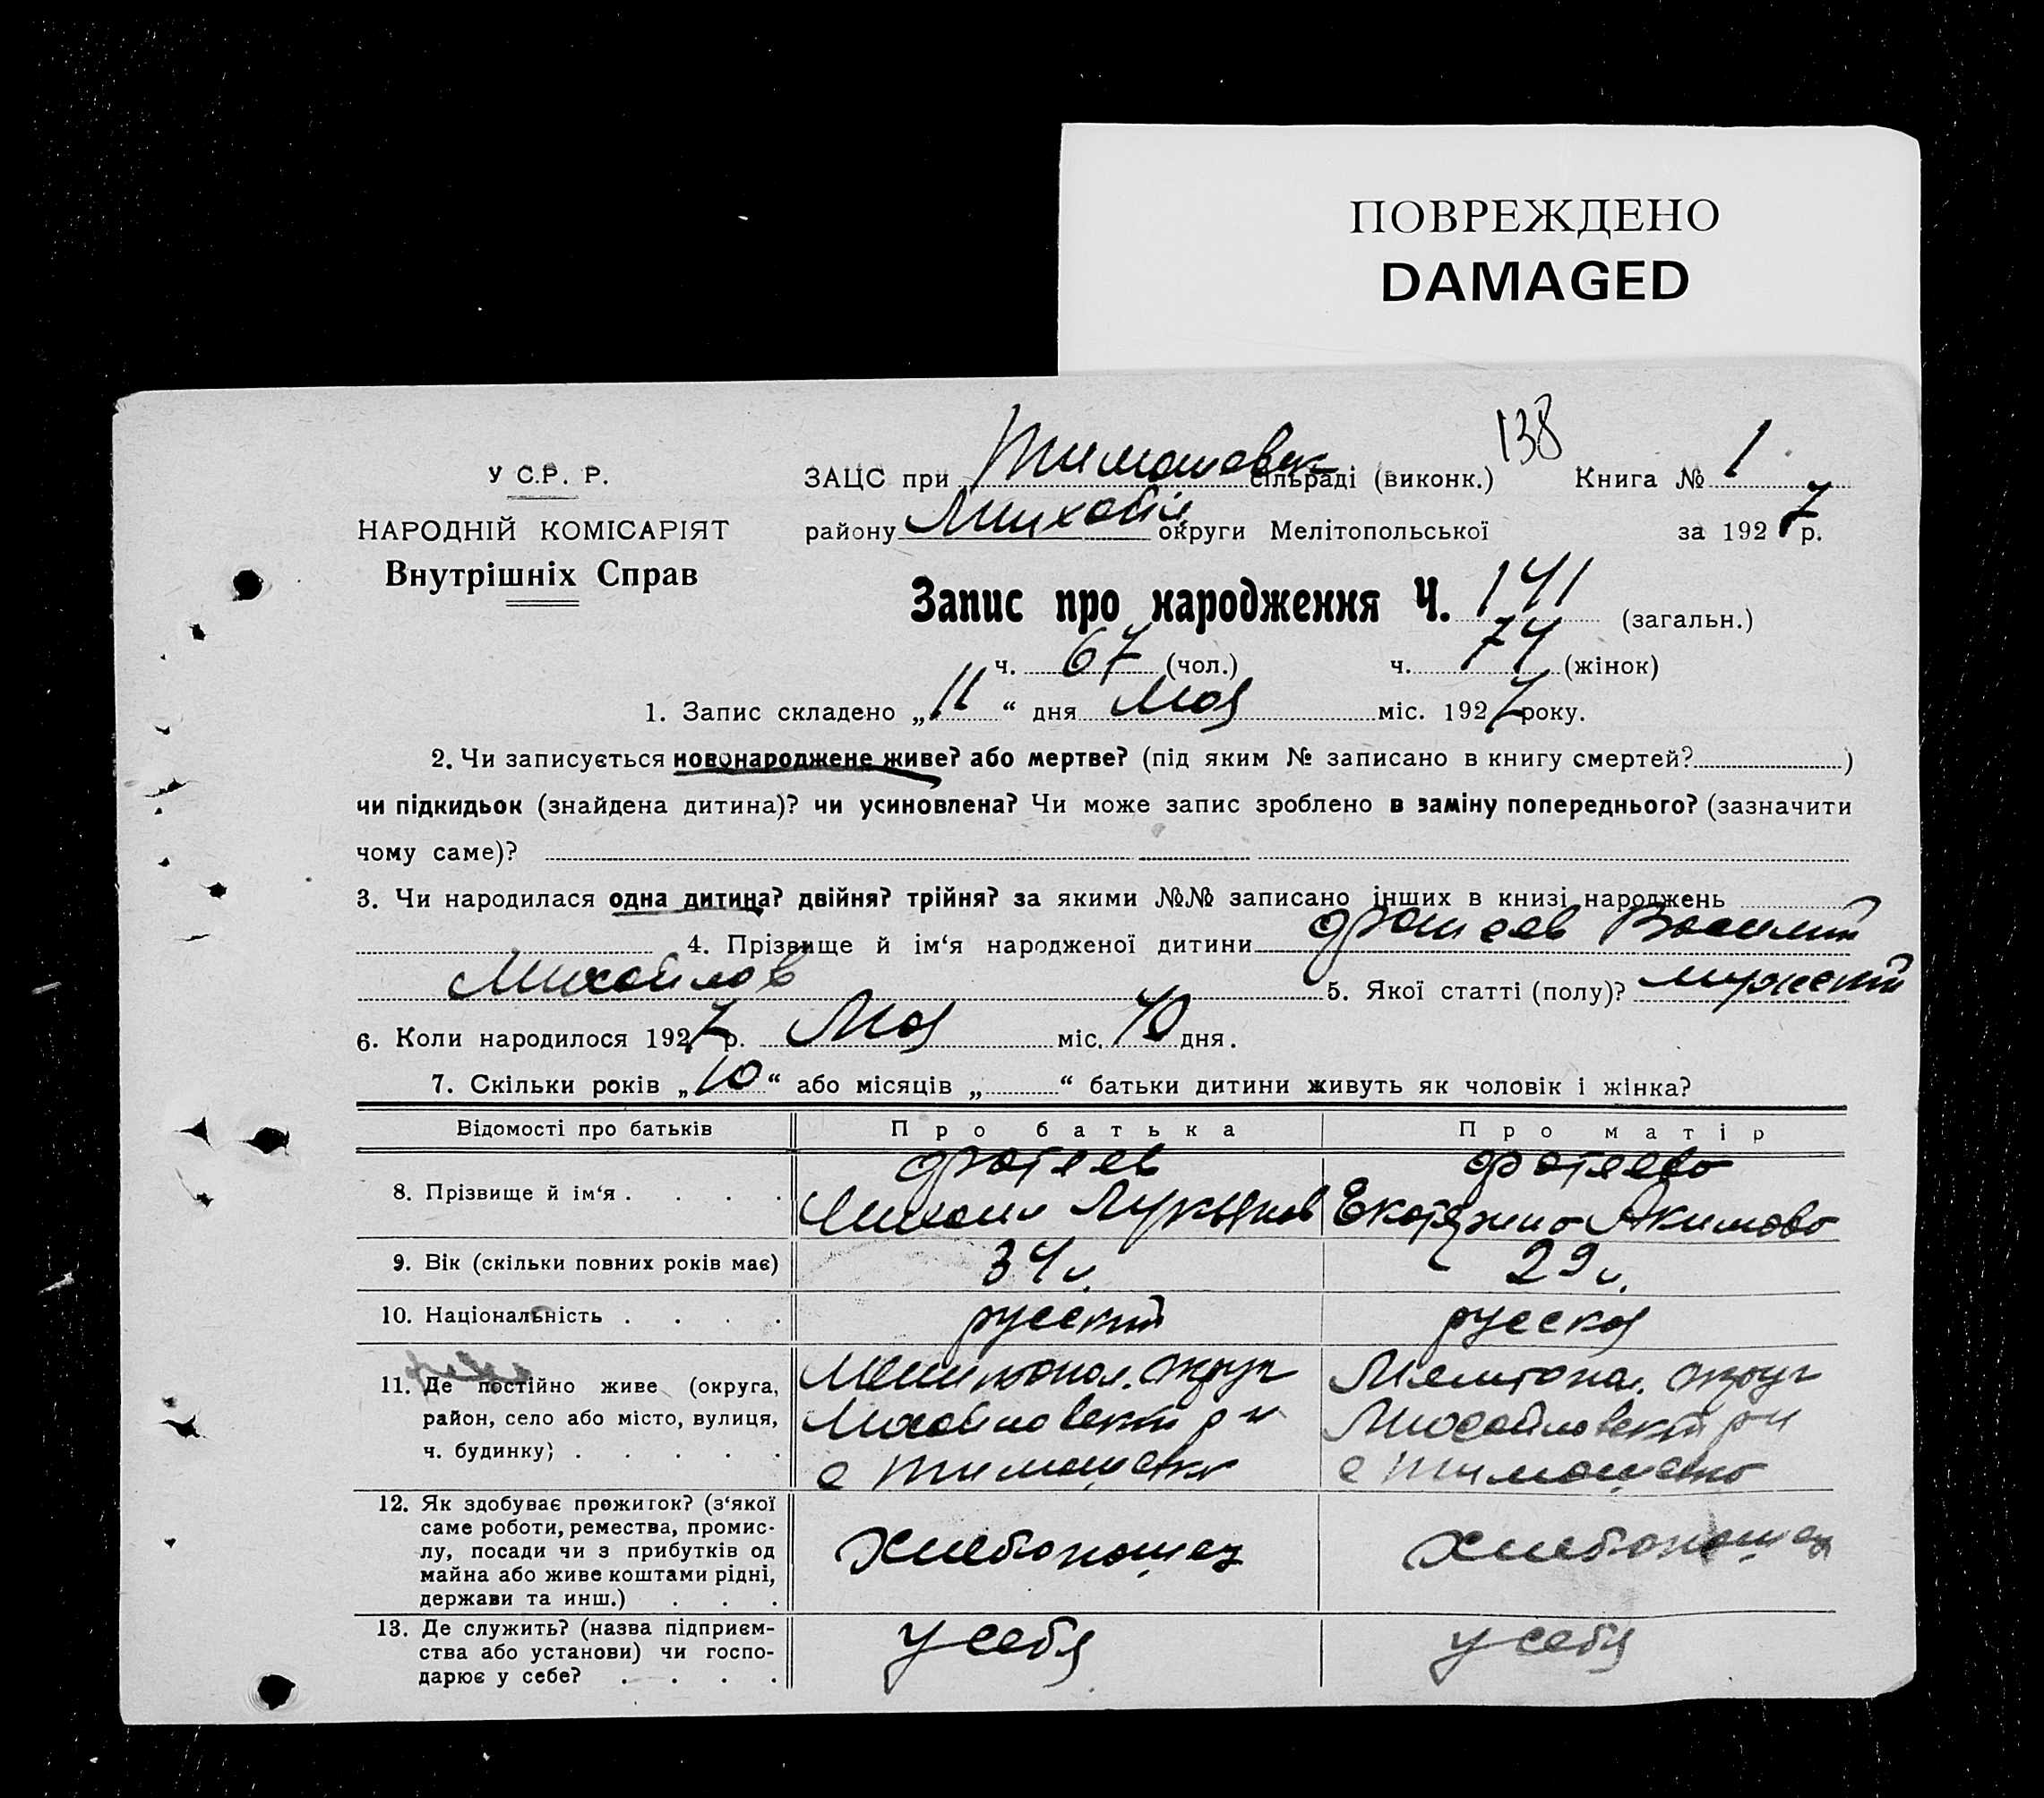 ПОВРЕЖДЕНО
DAMAGED
138
У С.Р. Р.
НАРОДНІЙ КОМІСАРІЯТ
Внутрішніх Справ
ЗАЦС при Тимашовск сільраді (виконк.) Книга № 1
району Михайл округи Мелітопольської за 1927 р.
Запис про народження Ч. 141 (загальн.)
ч. 67 (чол.) ч. 74 (жінок)
1. Запис складено „11“ дня Мая міс. 1927 року.
2. Чи записується новонароджене живе? або мертве? (під яким № записано в книгу смертей? )
чи підкидьок (знайдена дитина)? чи усиновлена? Чи може запис зроблено в заміну попереднього? (зазначити
чому саме)?
3. Чи народилася одна дитина? двійня? трійня? за якими №№ записано інших в книзі народжень
4. Прізвище й ім‘я народженої дитини Фатеев Василий
Михайлов 5. Якої статті (полу)? мужский
6. Коли народилося 1927 р. Мая міс. 10 дня.
7. Скільки років „10“ або місяців „ “ батьки дитини живуть як чоловік і жінка?
Відомості про батьків Про батька Про матір
8. Прізвище й ім‘я . . . . Фатеев Михаил Лукьянов Фатеева Екатерина Акимова
9. Вік (скільки повних років має) 34 29
10. Національність . . . . русский русская
11. Де постійно живе (округа, Мелитопол. округ Мелитопол. округ
район, село або місто, вулиця, Михайловский р-н Михайловский р-н
ч. будинку) . . . . . с Тимашевка с Тимашевка
12. Як здобуває прожиток? (з‘якої
саме роботи, ремества, промис-
лу, посади чи з прибутків од Хлебопашец Хлебопашец
майна або живе коштами рідні,
держави та инш.) . . .
13. Де служить? (назва підприєм- у себя у себя
ства або установи) чи госпо-
дарює у себе? . . . .